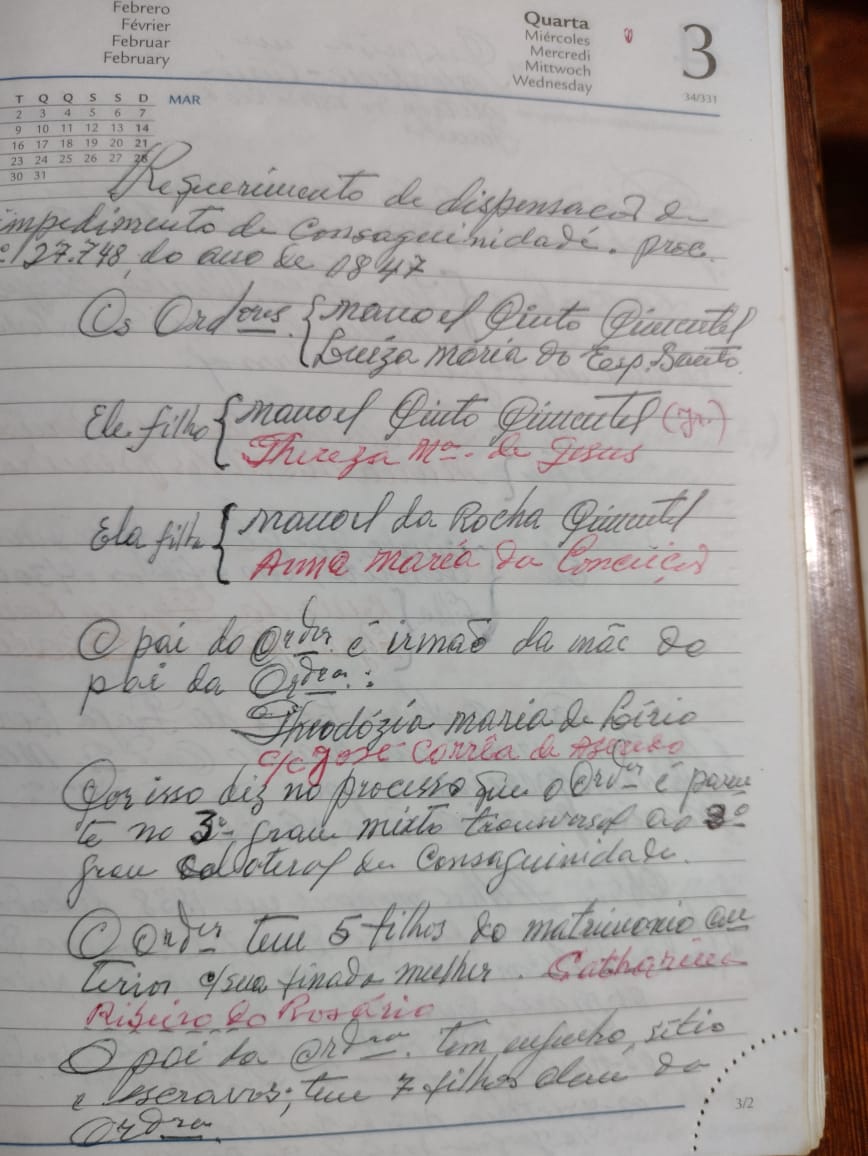 Febrero
Février
Februar
February
Quarta
Miércoles
Mercredi
Mittwoch
Wednesday
3
34/331
T Q Q S S D MAR
2 3 4 5 6 7
9 10 11 12 13 14
16 17 18 19 20 21
23 24 25 26 27 28
30 31
Requerimento de dispensação de
impedimento de Consaguinidade. proc.
27.748, do ano de 1847
Os Ordres { Manoel Pinto Pimentel
Luiza Maria do Esp. Santo
Ele filho { Manoel Pinto Pimentel (Jr.)
Thereza Mª. de Jesus
Ela filha { Manoel da Rocha Pimentel
Anna Maria da Conceiçã
O pai do Ordor. é irmão da mãe do
pai da Ordra. :
Theodózia Maria de Lírio
c/c José Corrêa de Azeredo
Por isso diz no processo que o Ordor é paren
te no 3º grau mixto transversal ao 3º
grau colateral de Consaguinidade.
O Ordor tem 5 filhos do matrimonio an
terior c/sua finada mulher. Catharina
Ribeiro do Rosário
O pai da Ordra. tem engenho, sítio
e escravos; tem 7 filhos alem da
Ordra.
3/2